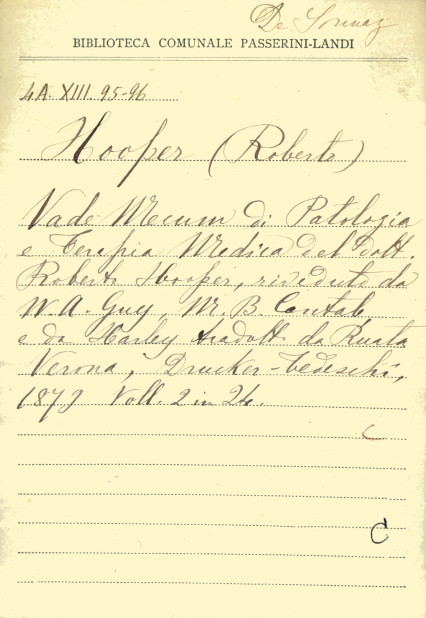 De Sonnaz
BIBLIOTECA COMUNALE PASSERINI-LANDI
4A. XIII. 95-96
Hooper (Roberto)
Vade Mecum di Patologia
e Terapia Medica del dott.
Roberto Hooper, riveduto da
W. A. Guy, M. B. Cantab,
e da Harley tradott. da Ruata
Verona, Drucker-Tedeschi,
1872 Voll. 2 in 24.
C